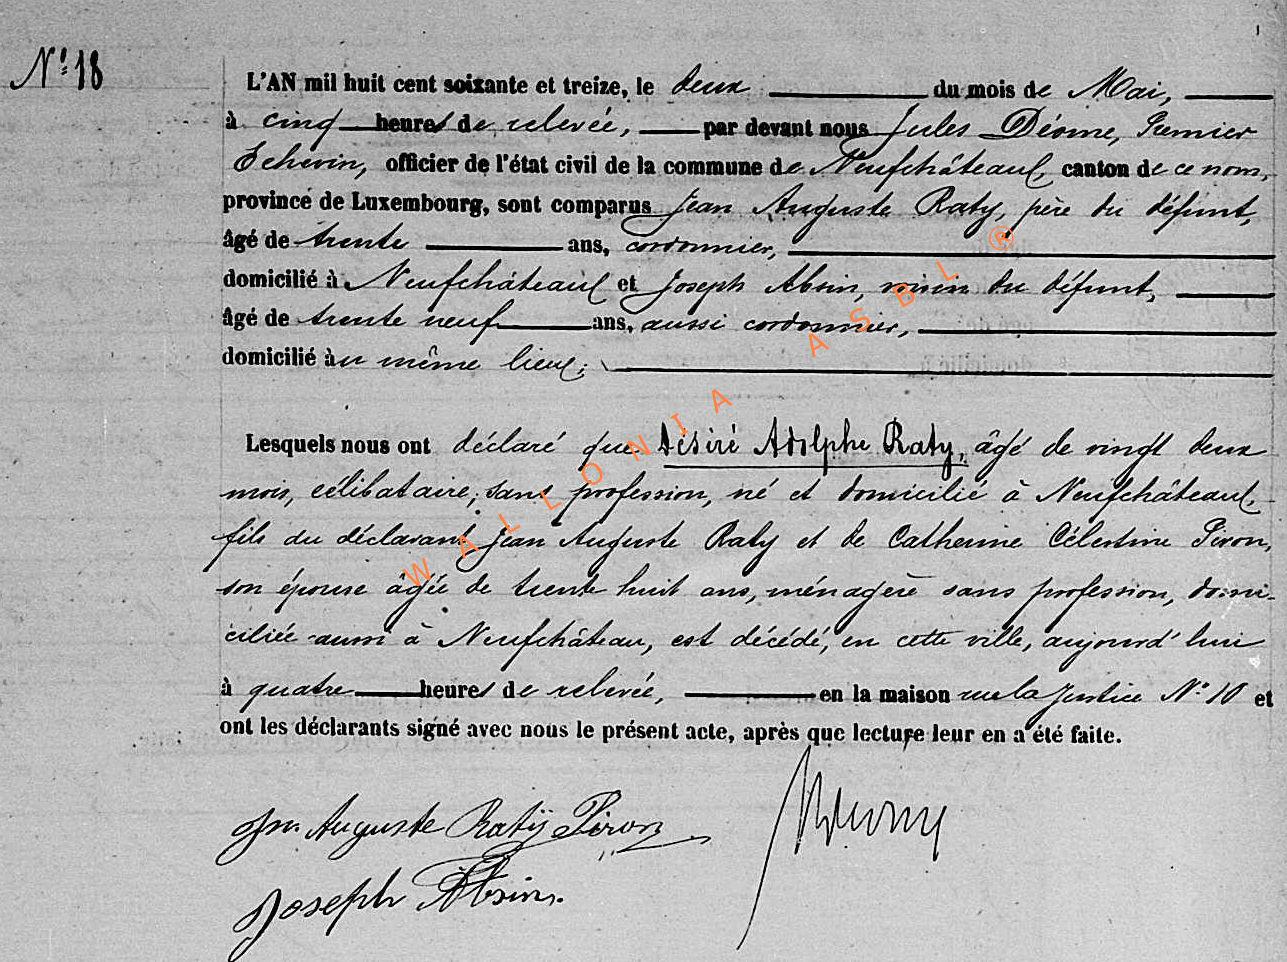 N.° 18
L'AN mil huit cent soixante et treize, le deux du mois de Mai,
à cinq heures de relevée, par devant nous Jules Déome, Premier
Echevin, officier de l'état civil de la commune de Neufchâteau, canton de ce nom,
province de Luxembourg, sont comparus Jean Auguste Raty, père du défunt,
âgé de trente ans, cordonnier,
domicilié à Neufchâteau et Joseph Absin, voisin du défunt,
âgé de trente neuf ans, aussi cordonnier,
domicilié au même lieu;
Lesquels nous ont déclaré que Désiré Adolphe Raty, âgé de vingt deux
mois, célibataire, sans profession, né et domicilié à Neufchâteau,
fils du déclarant Jean Auguste Raty et de Catherine Célestine Piron,
son épouse âgée de trente huit ans, ménagère sans profession, domi-
ciliée aussi à Neufchâteau, est décédé, en cette ville, aujourd'hui
à quatre heures de relevée, en la maison rue la Justice N.° 10 et
ont les déclarants signé avec nous le présent acte, après que lecture leur en a été faite.
Jn. Auguste Ratÿ Piron
Joseph Absin.
WALLONIA ASBL ®